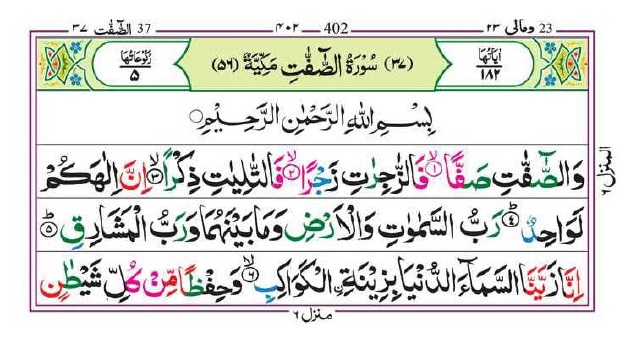 الصّٰٓفّٰت 37 ٣٧ 402 ٤٠٢ 23 ومالی ٢٣
اٰیَاتُهَا ١٨٢ (٣٧) سُوْرَةُ الصّٰٓفّٰتِ مَكِّیَّةٌ (٥٦) رُكُوْعَاتُهَا ٥
بِسْمِ اللّٰهِ الرَّحْمٰنِ الرَّحِیْمِ
وَالصّٰٓفّٰتِ صَفًّا ۙ‏﴿١﴾ فَالزّٰجِرٰتِ زَجْرًا ۙ‏﴿٢﴾ فَالتّٰلِیٰتِ ذِكْرًا ۙ‏﴿٣﴾ اِنَّ اِلٰهَكُمْ
لَوَاحِدٌ ؕ‏﴿٤﴾ رَبُّ السَّمٰوٰتِ وَالْاَرْضِ وَمَا بَیْنَهُمَا وَرَبُّ الْمَشَارِقِ ؕ‏﴿٥﴾
اِنَّا زَیَّنَّا السَّمَآءَ الدُّنْیَا بِزِیْنَةِ ۣالْكَوَاكِبِ ۙ‏﴿٦﴾ وَحِفْظًا مِّنْ كُلِّ شَیْطٰنٍ
المنزل ٦
منزل ٦